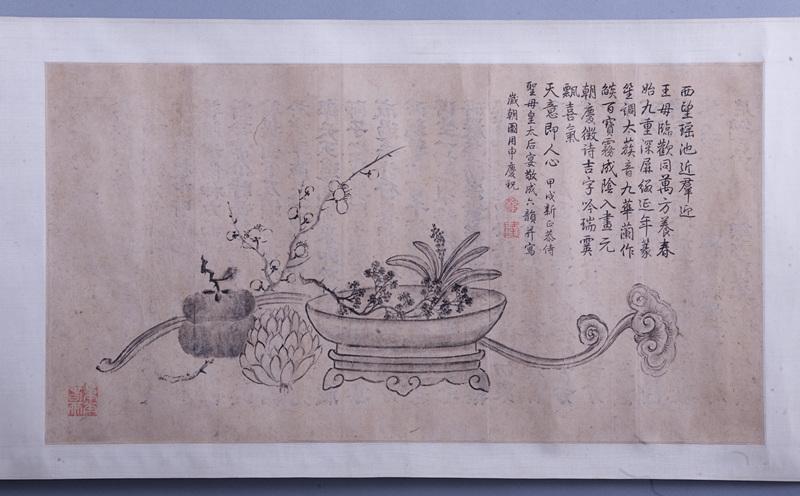 西望瑶池近羣迎
王母臨歡同萬方養春
始九重深屏綴延年篆
笙調太蔟音九華蘭作
燄百寶霧成陰入畫元
朝慶徵詩吉字吟瑞霙
飄喜氣
天意即人心 甲戌新正恭侍
聖母皇太后宴敬成六韻并寫
歲朝圖用申慶祝
乾
隆